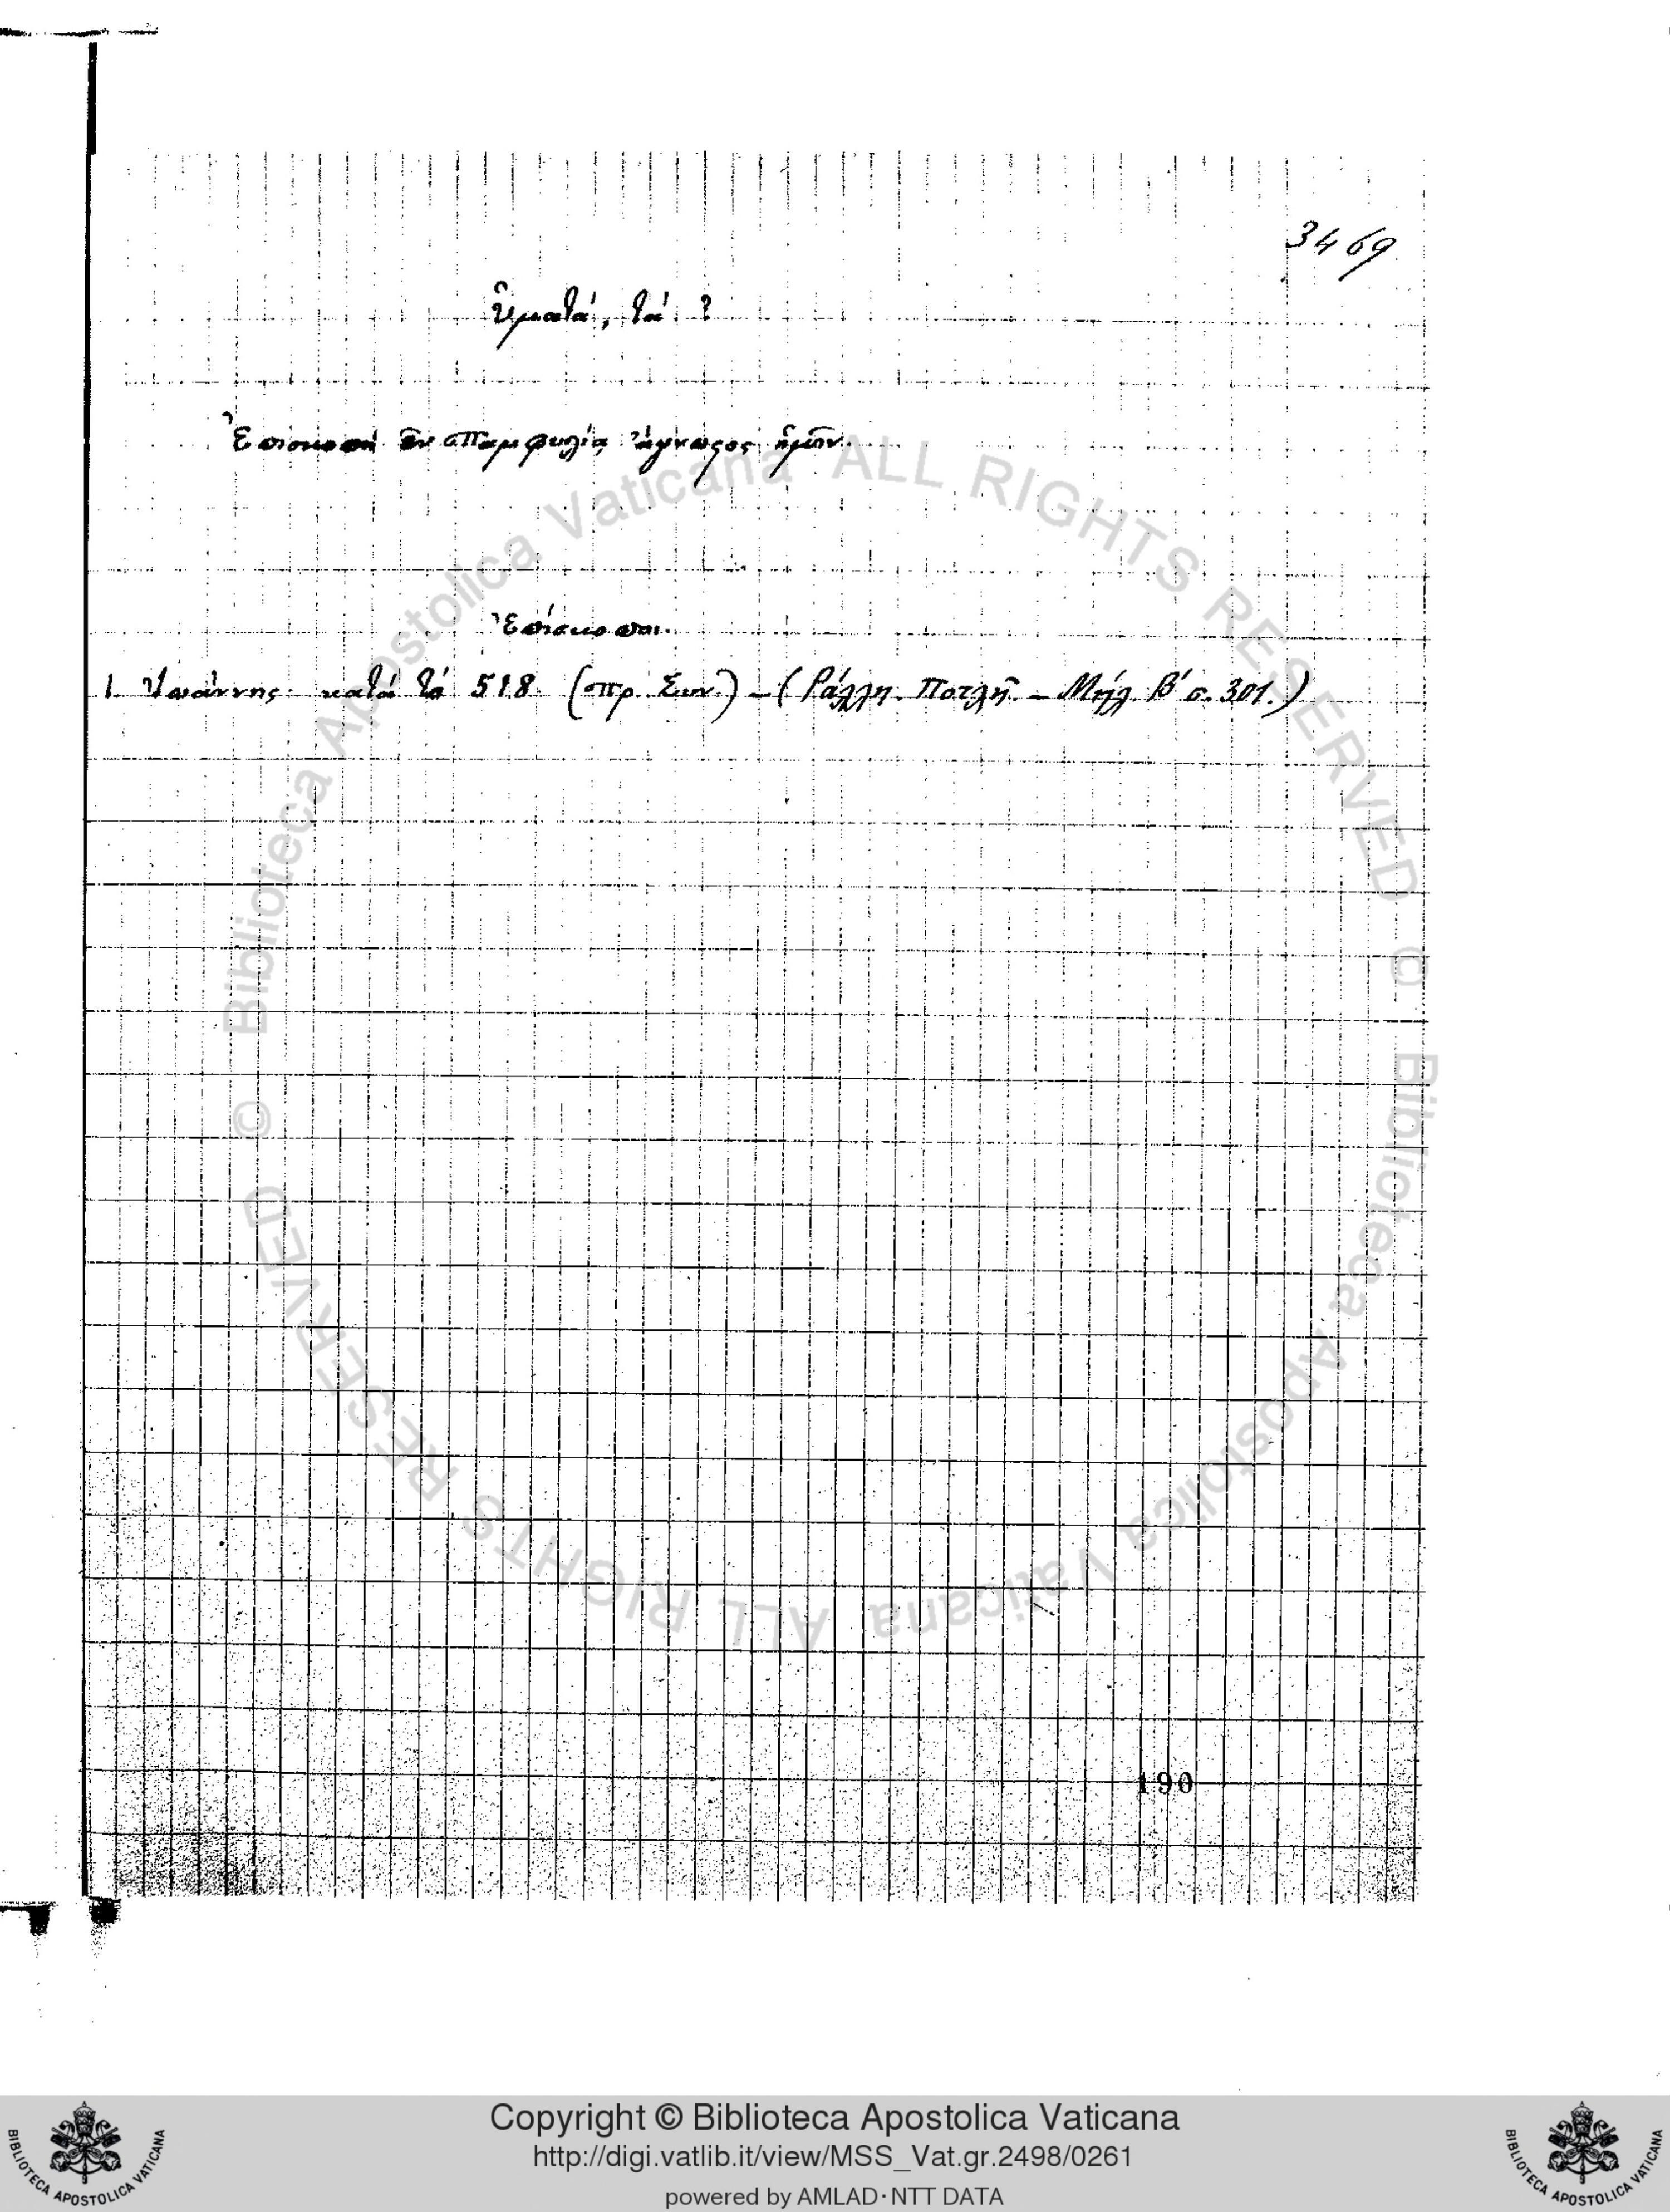 3469
Ὑματά, τά ?
Ἐπισκοπὴ ἐν Παμφυλίᾳ ἄγνωστος ἡμῖν.
Ἐπίσκοποι.
1. Ἰωάννης κατά τό 518. (πρ. Συν.) – (Ράλλη. Ποτλῆ. – Μήλ. Β΄ σ. 301.)
190
© Biblioteca Apostolica Vaticana ALL RIGHTS RESERVED
© Biblioteca Apostolica Vaticana ALL RIGHTS RESERVED
Copyright © Biblioteca Apostolica Vaticana
http://digi.vatlib.it/view/MSS_Vat.gr.2498/0261
powered by AMLAD·NTT DATA
BIBLIOTECA APOSTOLICA VATICANA
BIBLIOTECA APOSTOLICA VATICANA